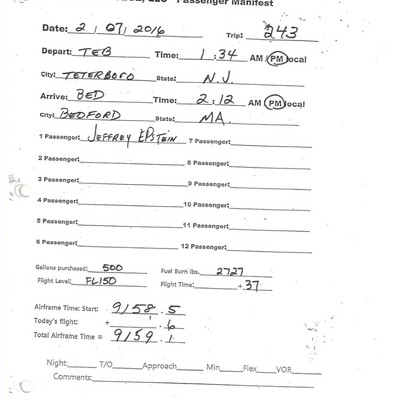 Passenger Manifest
Date: 2 / 07 / 2016 Trip: 243
Depart: TEB Time: 1:34 AM / PM local
City: TETERBORO State: N.J.
Arrive: BED Time: 2:12 AM / PM local
City: BEDFORD State: MA.
1 Passenger: JEFFREY EPSTEIN 7 Passenger:
2 Passenger: 8 Passenger:
3 Passenger: 9 Passenger:
4 Passenger: 10 Passenger:
5 Passenger: 11 Passenger:
6 Passenger: 12 Passenger:
Gallons purchased: 500 Fuel Burn lbs. 2727
Flight Level: FL150 Flight Time: +37
Airframe Time: Start: 9158.5
Today's flight: + .6
Total Airframe Time = 9159.1
Night: T/O Approach Min Flex VOR
Comments: